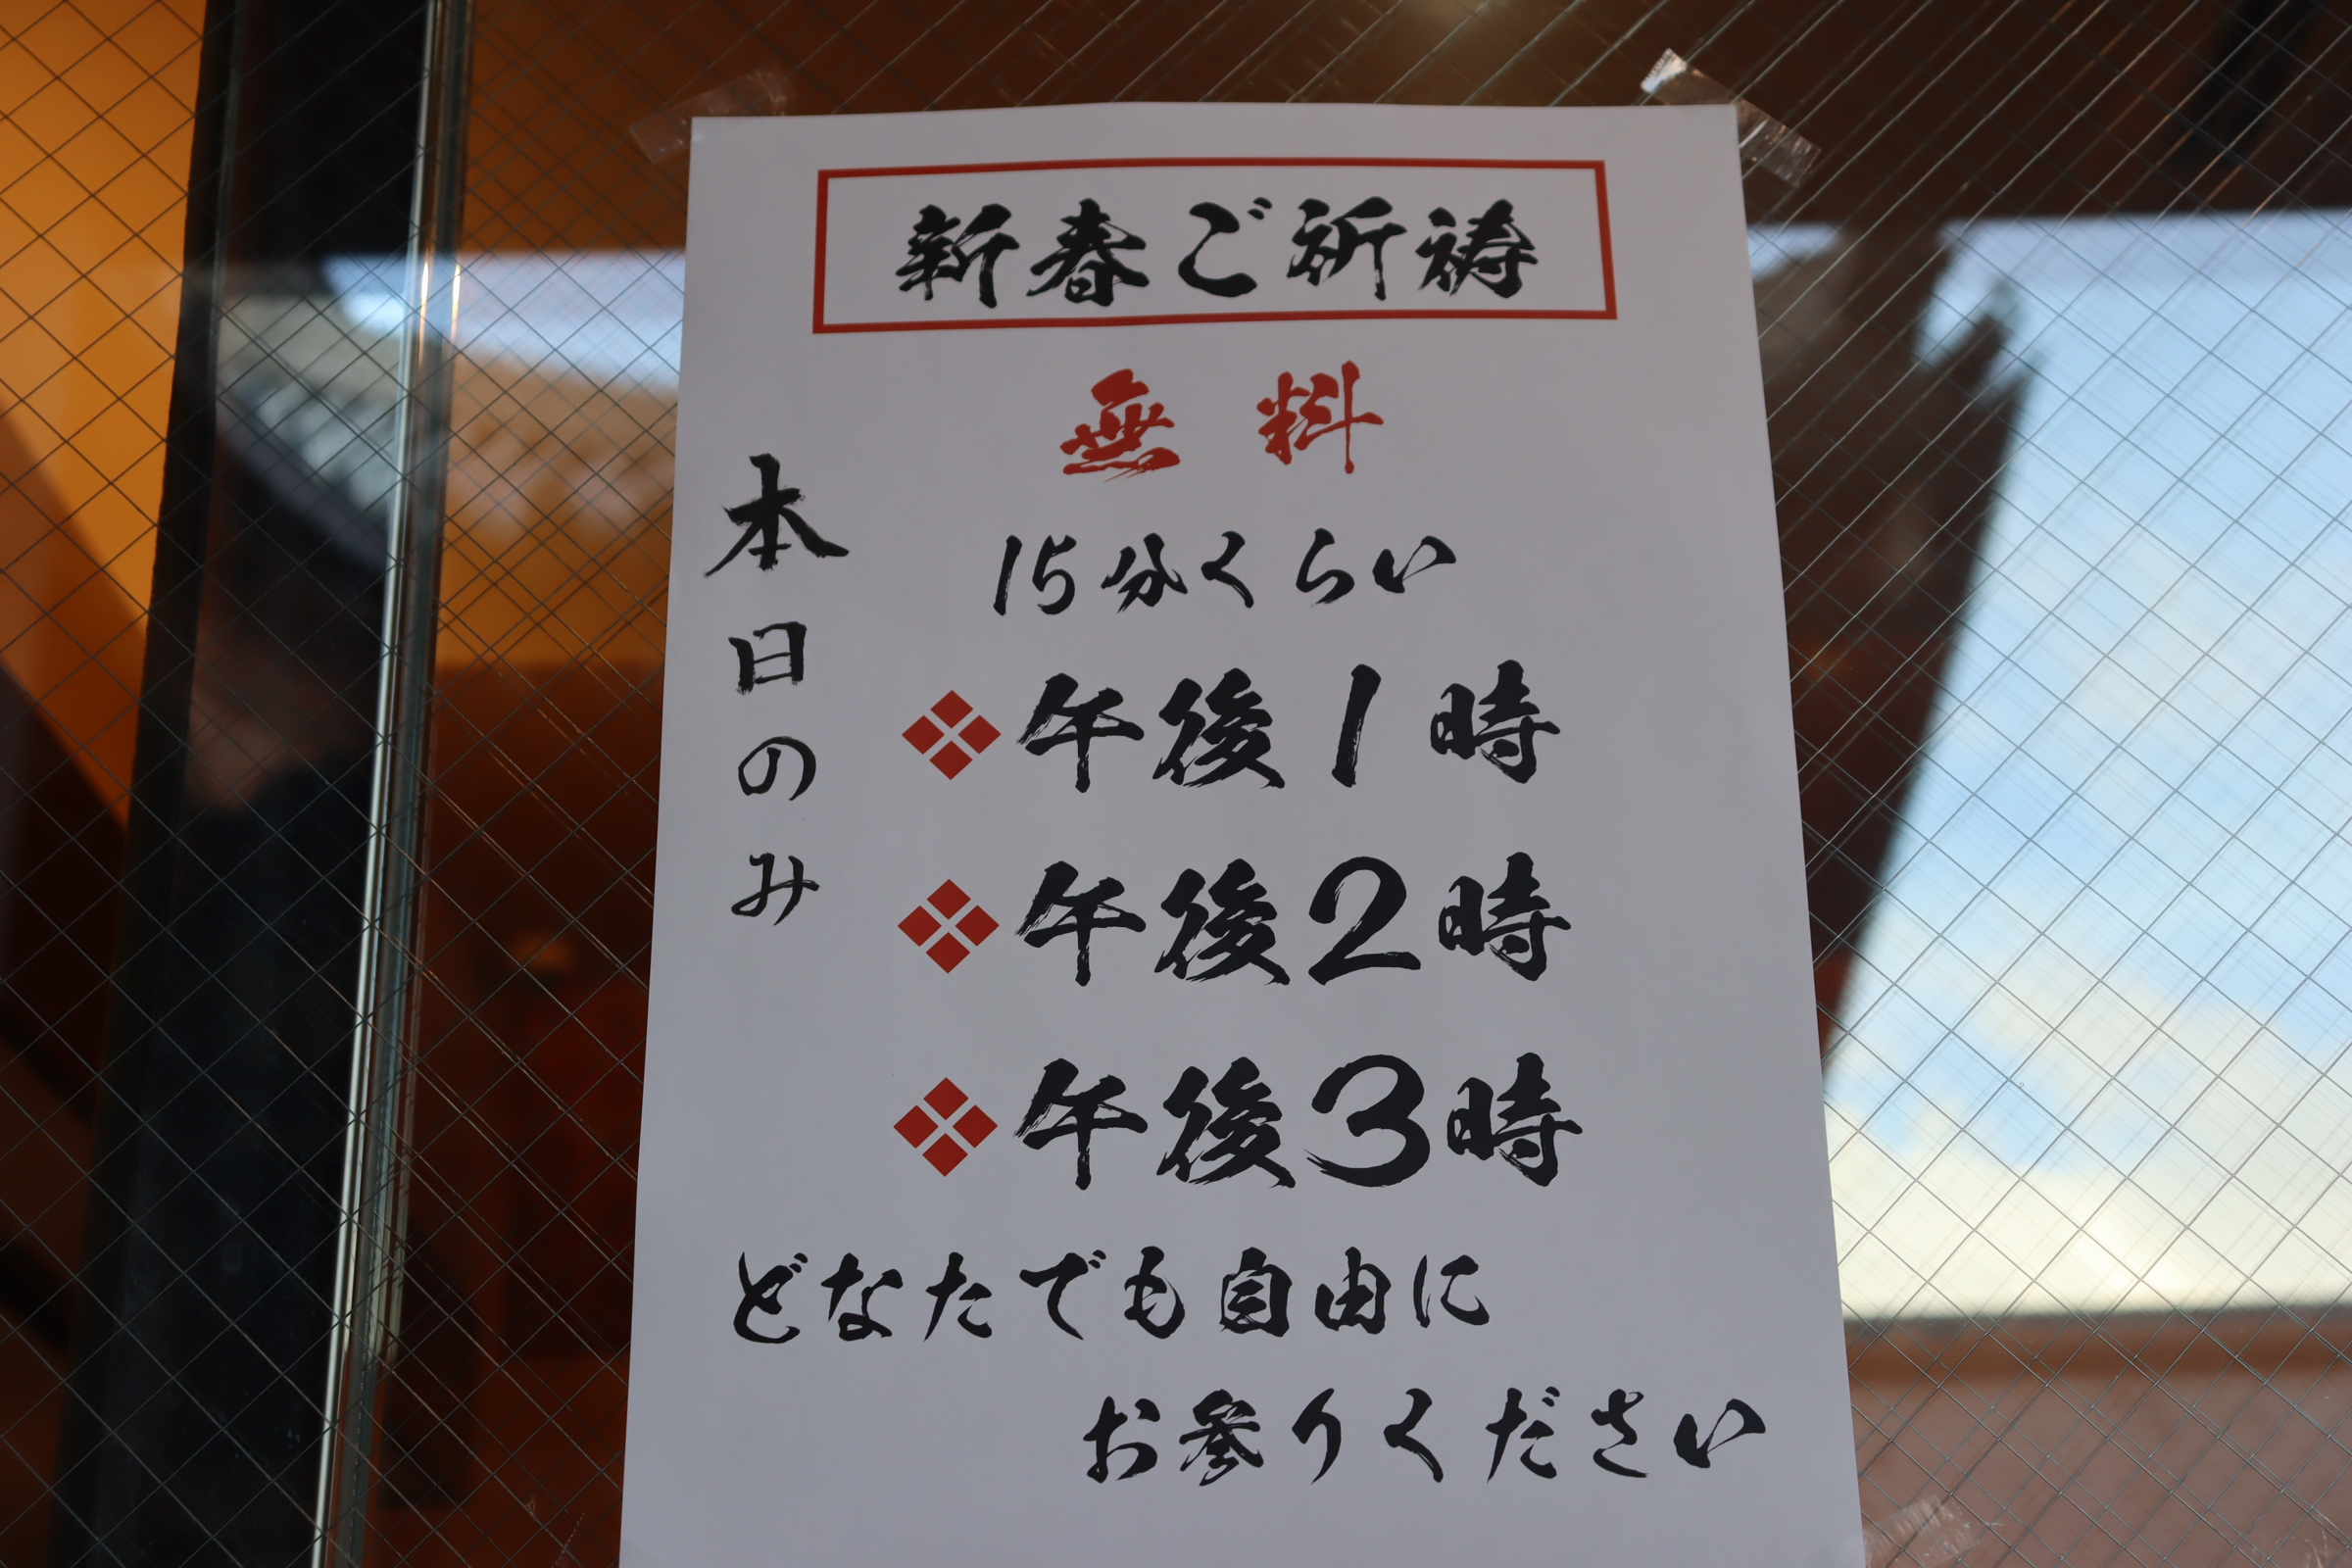 新春ご祈祷
無料
15分くらい
本日のみ
❖午後1時
❖午後2時
❖午後3時
どなたでも自由に
お参りください